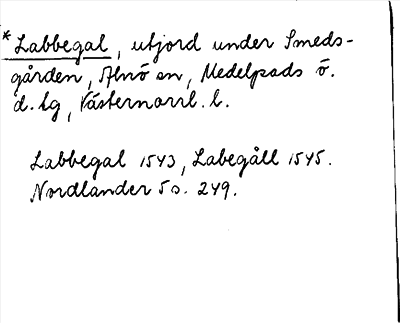 * Labbegal, utjord under Smeds-
gården, Alnö sn, Medelpads ö.
d. tg, Västernorrl. l.
Labbegal 1543, Labegåll 1545.
Nordlander 5 s. 249.